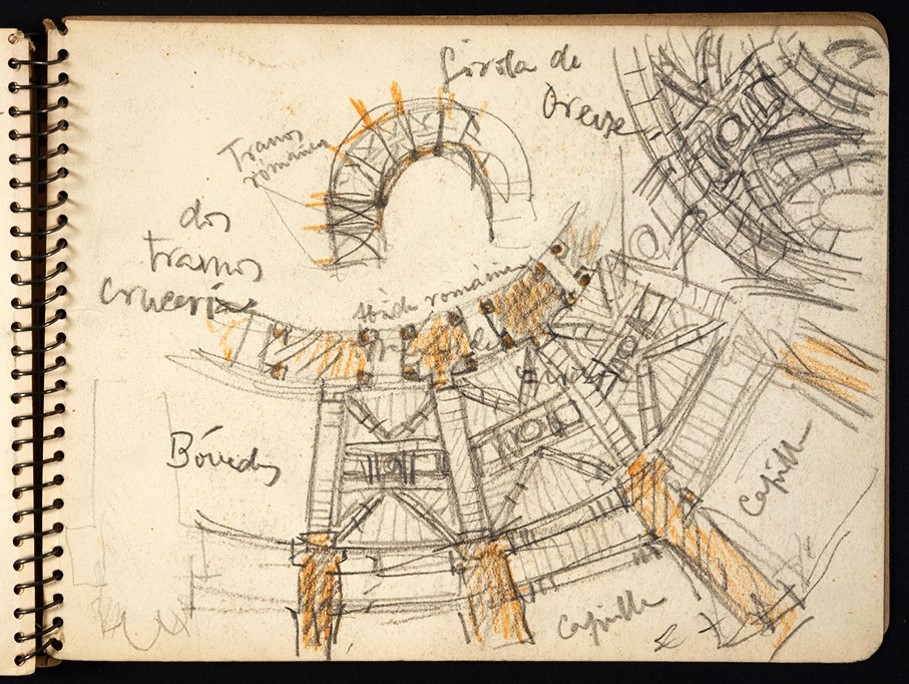 Girola de
Orense
Tramos
románica
dos
tramos
crucerías
románica
Bóvedas
Capilla
Capilla